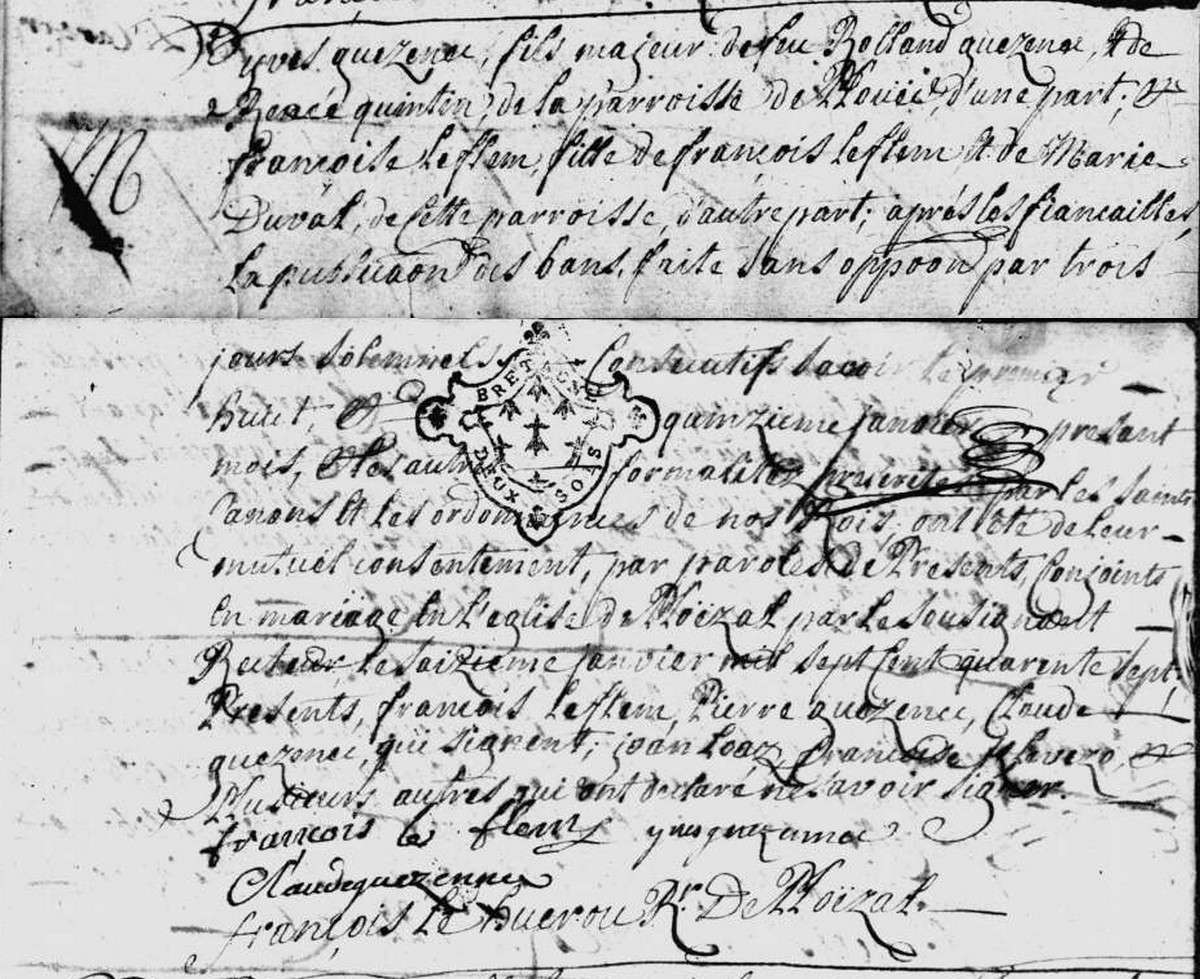 yves quezenec, fils majeur de feu Rolland quezenec, & de
Renée quinten, de la parroisse de Ploüec, d'une part; &
françoise Le flem, fille de françois Le flem & de Marie
Duval, de cette parroisse, d'autre part; après les fiancailles,
La publicaon des bans, faite sans oppoon par trois
jours solemnels consecutifs savoir le premier
huit, & quinzieme janvier present
mois, & les autres formalitez par les saints
Canons et les ordonnances de nos Rois, ont été de leur
mutuel consentement, par paroles de Presents, Conjoints
en mariage en l'eglise de Ploëzal par le sousignant
Recteur, le saizieme janvier mil sept cent quarente sept;
Presents, francois Le flem, Pierre quezenec, Claude
quezenec, qui signent; françoise &
Plusieurs autres qui ont declaré ne savoir signer.
françois le flem yves quezennec
Claude quezennec
françois Le huerou R.r De Ploëzal.
BRETAGNE
DEUX SOLS